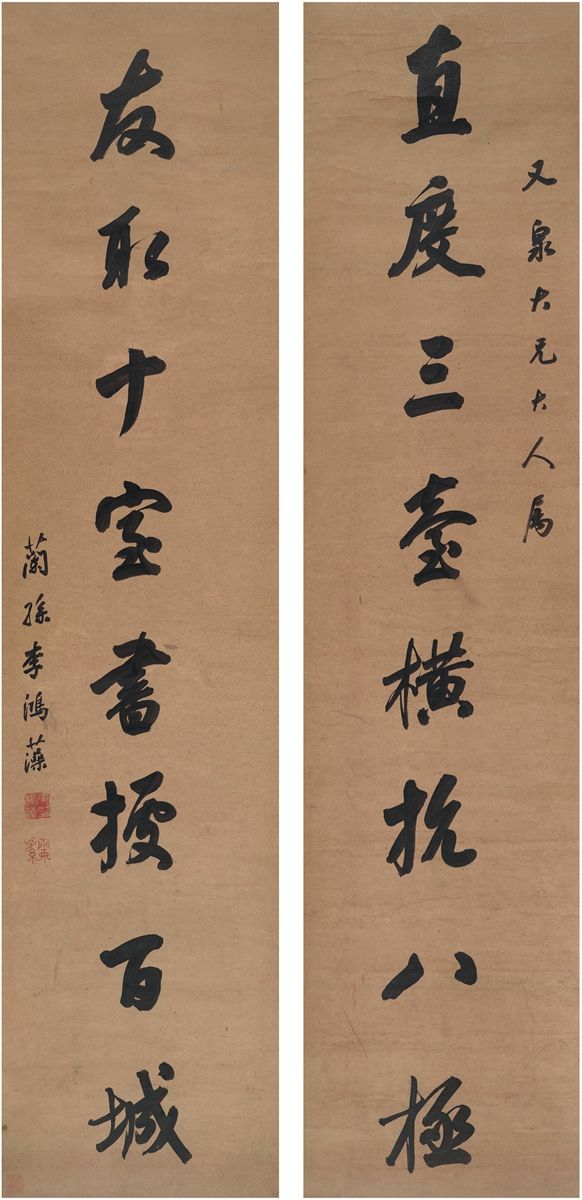 又泉大兄大人属
直度三臺橫抗八極
友取十室書擁百城
蘭孫李鴻藻